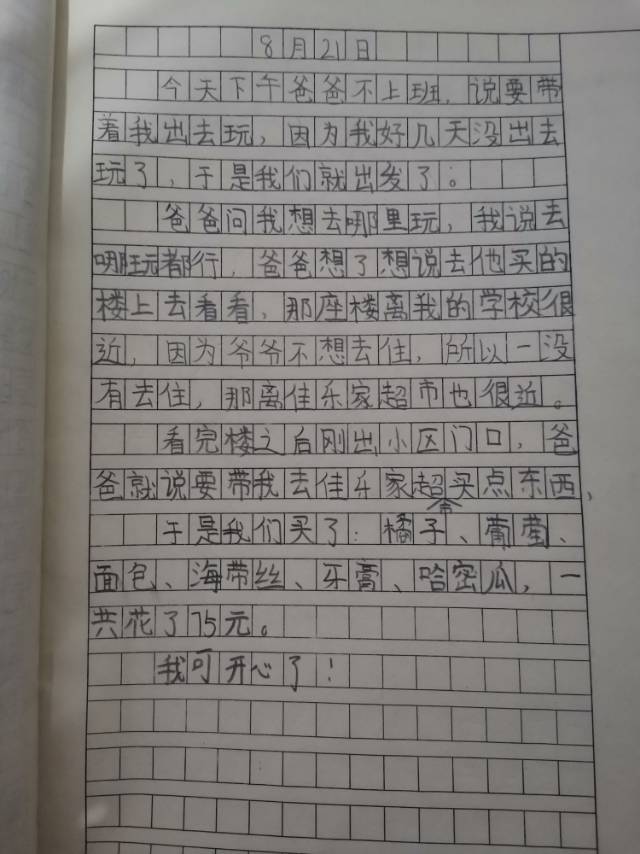 8月21日
今天下午爸爸不上班，说要带
着我出去玩，因为我好几天没出去
玩了，于是我们就出发了。
爸爸问我想去哪里玩，我说去
哪玩都行，爸爸想了想说去他买的
楼上去看看，那座楼离我的学校很
近，因为爷爷不想去住，所以一没
有去住，那离佳乐家超市也很近。
看完楼之后刚出小区门口，爸
爸就说要带我去佳乐家超市买点东西，
于是我们买了：橘子、葡萄、
面包、海带丝、牙膏、哈密瓜，一
共花了75元。
我可开心了！